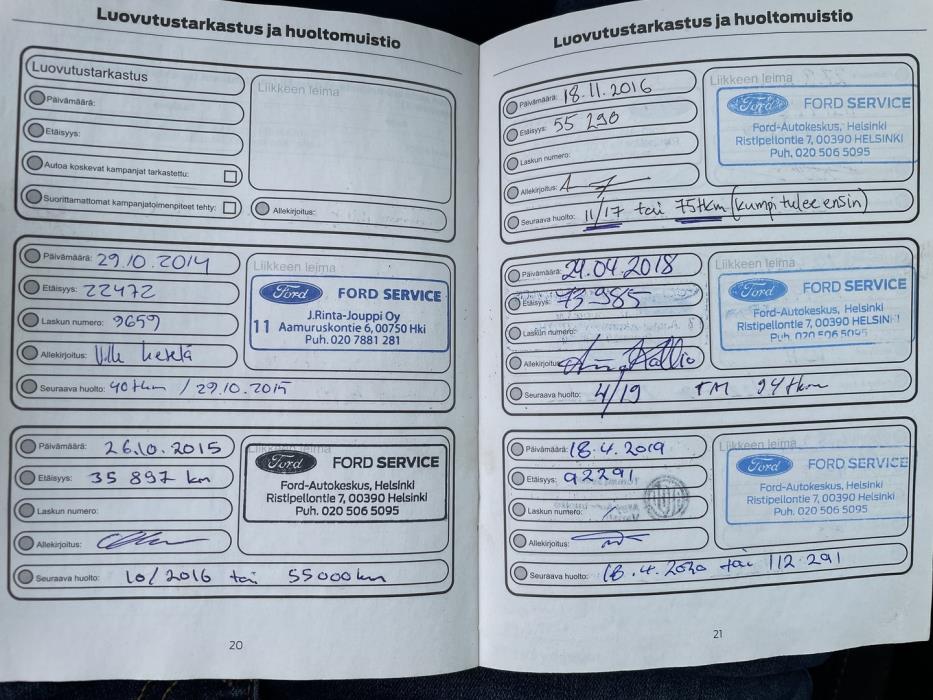 Luovutustarkastus ja huoltomuistio
Luovutustarkastus
Päivämäärä:
Etäisyys:
Autoa koskevat kampanjat tarkastettu:
Suorittamattomat kampanjatoimenpiteet tehty:
Liikkeen leima
Allekirjoitus:
Päivämäärä: 29.10.2014
Etäisyys: 22472
Laskun numero: 9659
Allekirjoitus: Ville
Seuraava huolto: 40tkm / 29.10.2015
Liikkeen leima
Ford FORD SERVICE
J.Rinta-Jouppi Oy
11 Aamuruskontie 6, 00750 Hki
Puh. 020 7881 281
Päivämäärä: 26.10.2015
Etäisyys: 35 897 km
Laskun numero:
Allekirjoitus:
Seuraava huolto: 10/2016 tai 55000km
Liikkeen leima
Ford FORD SERVICE
Ford-Autokeskus, Helsinki
Ristipellontie 7, 00390 Helsinki
Puh. 020 506 5095
20
Luovutustarkastus ja huoltomuistio
Päivämäärä: 18.11.2016
Etäisyys: 55 290
Laskun numero:
Allekirjoitus:
Seuraava huolto: 11/17 tai 75tkm (kumpi tulee ensin)
Liikkeen leima
Ford FORD SERVICE
Ford-Autokeskus, Helsinki
Ristipellontie 7, 00390 HELSINKI
Puh. 020 506 5095
Päivämäärä: 24.04.2018
Etäisyys: 73985
Laskun numero:
Allekirjoitus: Kallio
Seuraava huolto: 4/19 TAI 94tkm
Liikkeen leima
Ford FORD SERVICE
Ford-Autokeskus, Helsinki
Ristipellontie 7, 00390 HELSINKI
Puh. 020 506 5095
Päivämäärä: 18.4.2019
Etäisyys: 92291
Laskun numero:
Allekirjoitus:
Seuraava huolto: 18.4.2020 tai 112 291
Liikkeen leima
Ford FORD SERVICE
Ford-Autokeskus, Helsinki
Ristipellontie 7, 00390 HELSINKI
Puh. 020 506 5095
21